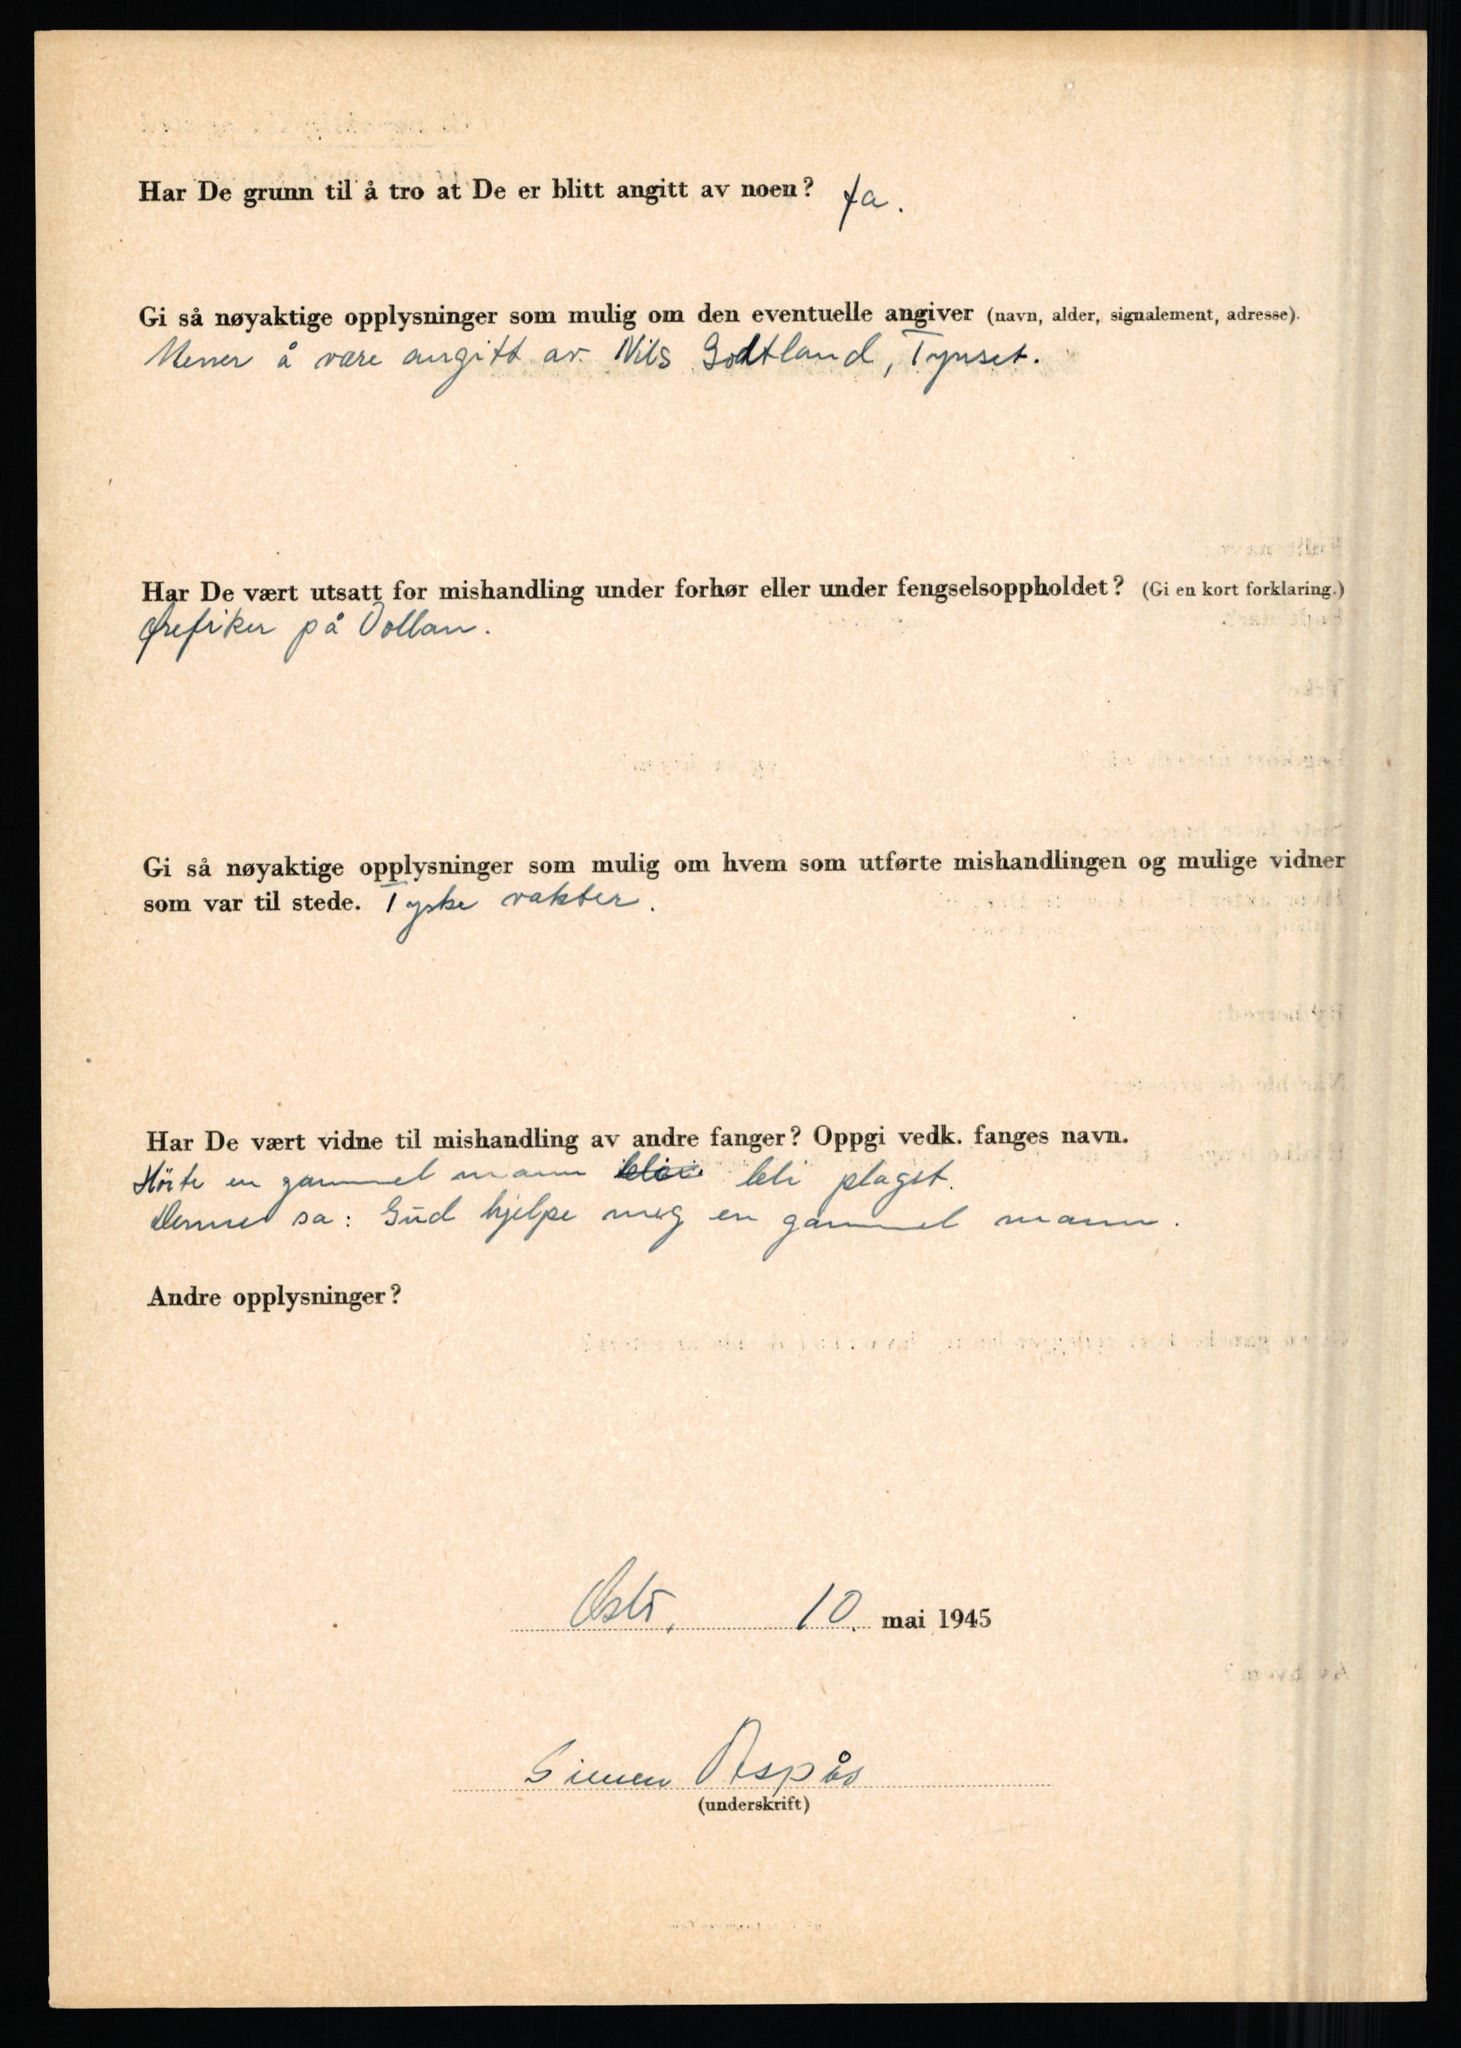 Har De grunn til å tro at De er blitt angitt av noen? Ja.
Gi så nøyaktige opplysninger som mulig om den eventuelle angiver (navn, alder, signalement, adresse).
Mener å være angitt av Nils Godtland, Tynset.
Har De vært utsatt for mishandling under forhør eller under fengselsoppholdet? (Gi en kort forklaring.)
Ørefiker på Vollan.
Gi så nøyaktige opplysninger som mulig om hvem som utførte mishandlingen og mulige vidner
som var til stede. Tyske vakter.
Har De vært vidne til mishandling av andre fanger? Oppgi vedk. fanges navn.
Hörte en gammel mann bli plaget.
Denne sa: Gud hjelpe meg en gammel mann.
Andre opplysninger?
Oslo, 10. mai 1945
Simen Aspås
(underskrift)